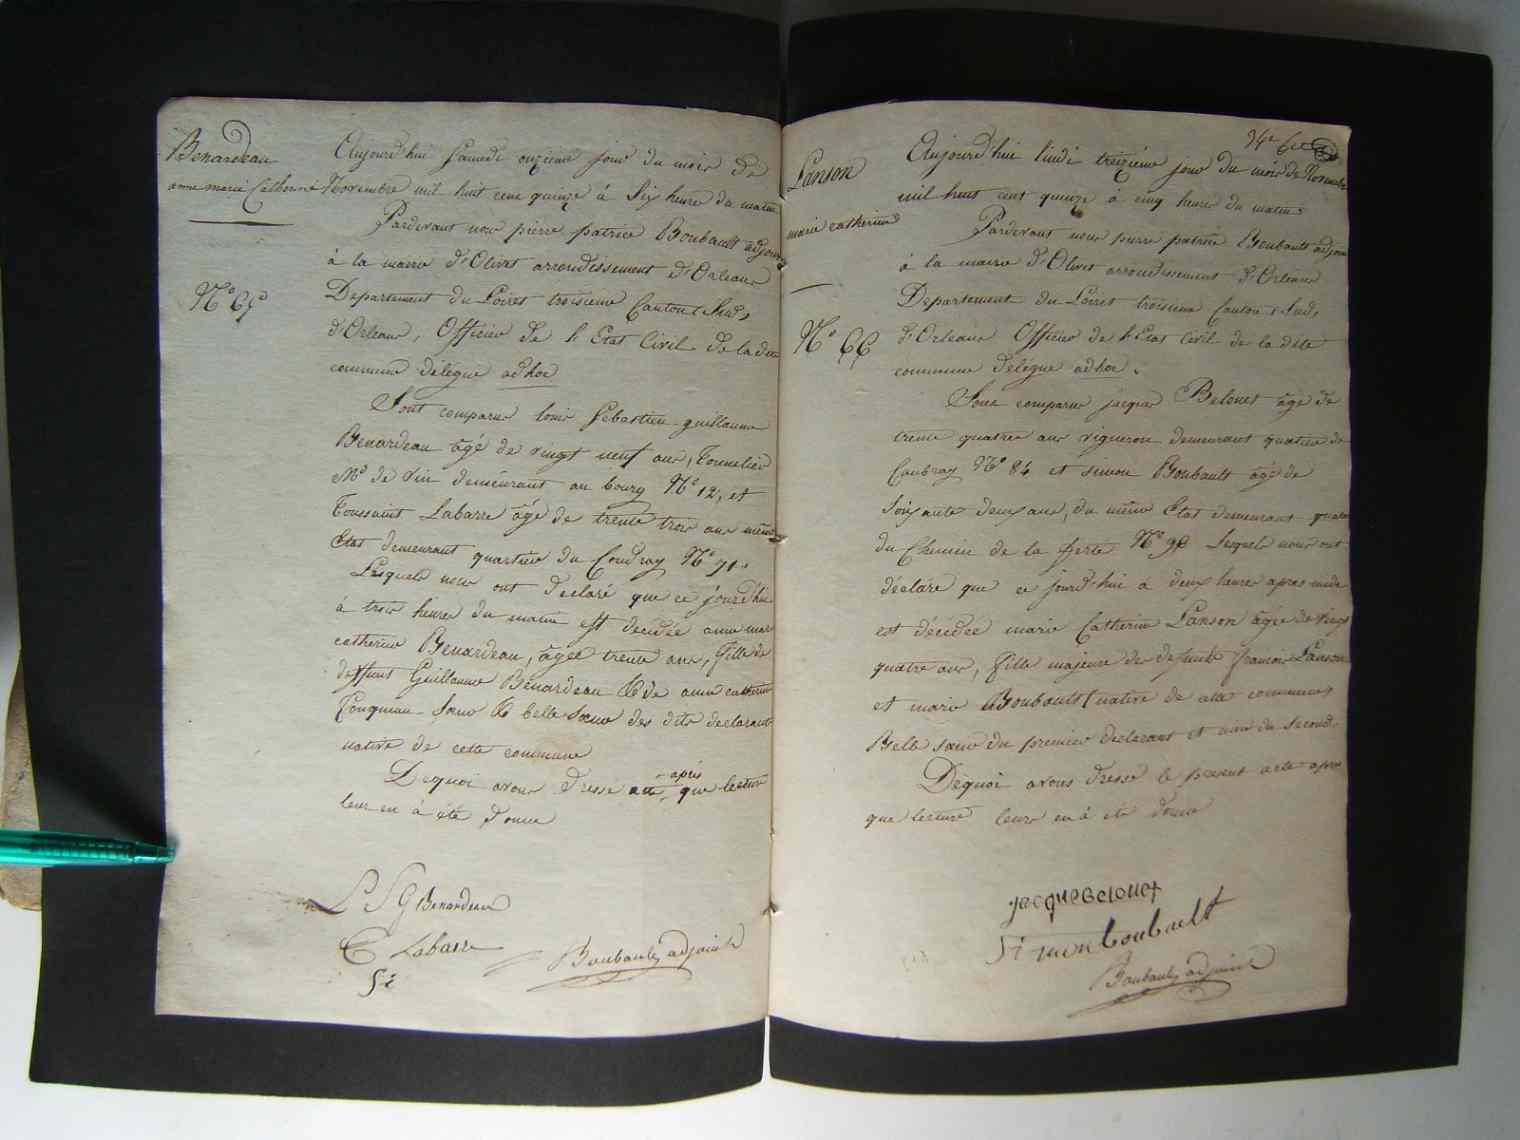 Benardeau
anne marie Catherine
N° 65
Aujourd'hui Samedi onzieme jour du mois de
Novembre mil huit cent quinze à Six heure du matin
Pardevant nous pierre patrice Boubault adjoint
à la mairie d'Olivet arrondissement d'Orleans
Departement du Loiret troisieme Canton, Sud,
d'Orleans, Officier de l'Etat Civil de la dite
commune délégué ad hoc
Sont comparus louis Sebastien guillaume
Benardeau âgé de vingt neuf ans, Tonnelier
Md de Vin demeurant au bourg N° 12, et
Toussaint Labarre âgé de trente trois ans même
Etat demeurant quartier du Coudray N° 71.
Lesquels nous ont declaré que ce jourd'hui
à trois heures du matin est decédée anne marie
catherine Benardeau, âgée trente ans, fille de
deffunt Guillaume Benardeau & de anne catherine
Fouqueau Sœur & belle Sœur des dits declarants
native de cette commune
De quoi avons dressé acte, après que lecture
leur en à été donné
L S G Benardeau
T Labarre
Boubault adjoint
Lanson
marie catherine
N° 66
Aujourd'hui lundi treizième jour du mois de Novembre
mil huit cent quinze à cinq heure du matin
Pardevant nous pierre patrice Boubault adjoint
à la mairie d'Olivet arrondissement d'Orleans
Departement du Loiret troisieme Canton, Sud,
d'Orleans Officier de l'Etat Civil de la dite
commune délégué ad hoc.
Sont comparus jacques Belouet âgé de
trente quatre ans vigneron demeurant quartier du
Coudray N° 84 et simon Boubault âgé de
Soixante deux ans, du même Etat demeurant quartier
du Chemin de la ferté N° 98 Lesquels nous ont
déclaré que ce jourd'hui à deux heures après midi
est décédée marie Catherine Lanson âgée de vingt
quatre ans, fille majeure des defunts francois Lanson
et marie Boubault native de cette commune
Belle sœur du premier declarant et niece du Second.
De quoi avons dressé le present acte après
que lecture leur en à été donné
jacque Belouet
Simon boubault
Boubault adjoint